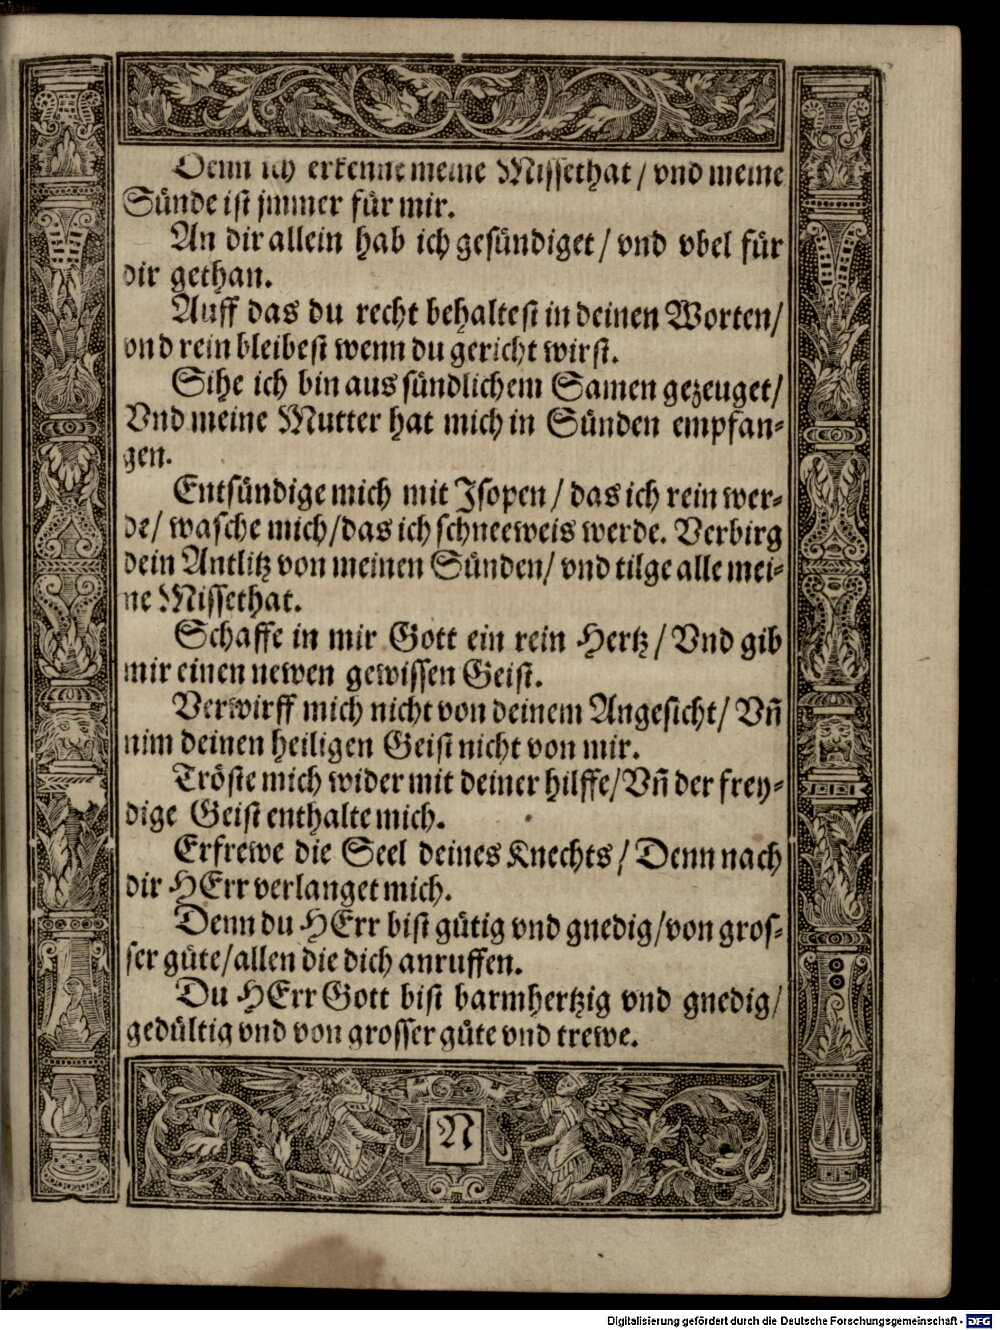 Denn ich erkenne meine Missethat / vnd meine
Sünde ist jmmer für mir.
An dir allein hab ich gesündiget / vnd vbel für
dir gethan.
Auff das du recht behaltest in deinen Worten /
vnd rein bleibest wenn du gericht wirst.
Sihe ich bin aus sündlichem Samen gezeuget /
Vnd meine Mutter hat mich in Sünden empfan-
gen.
Entsündige mich mit Jsopen / das ich rein wer-
de / wasche mich / das ich schneeweis werde. Verbirg
dein Antlitz von meinen Sünden / vnd tilge alle mei-
ne Missethat.
Schaffe in mir Gott ein rein Hertz / Vnd gib
mir einen newen gewissen Geist.
Verwirff mich nicht von deinem Angesicht / Vn̄
nim deinen heiligen Geist nicht von mir.
Tröste mich wider mit deiner hilffe / Vn̄ der frey-
dige Geist enthalte mich.
Erfrewe die Seel deines Knechts / Denn nach
dir HErr verlanget mich.
Denn du HErr bist gütig vnd gnedig / von gros-
ser güte / allen die dich anruffen.
Du HErr Gott bist barmhertzig vnd gnedig /
gedültig vnd von grosser güte vnd trewe.
N
Digitalisierung gefördert durch die Deutsche Forschungsgemeinschaft - DFG